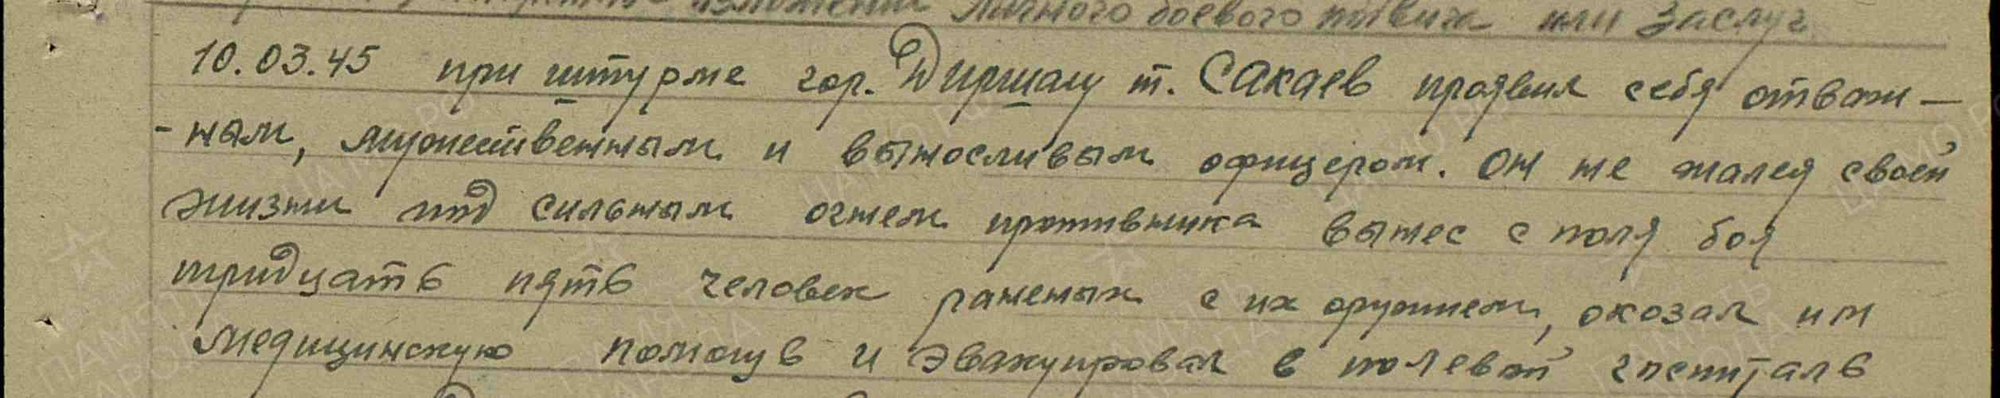 изложение личного боевого подвига или заслуг
10.03.45 при штурме гор. Диршау т. Сакаев проявил себя отваж-
-ным, мужественным и выносливым офицером. Он не жалея своей
жизни под сильным огнем противника вынес с поля боя
тридцать пять человек раненых с их оружием, оказал им
медицинскую помощь и эвакуировал в полевой госпиталь